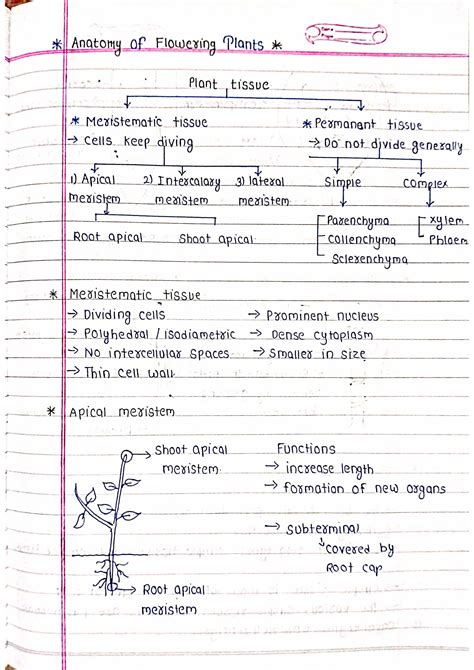 * Anatomy of Flowering Plants *
Plant tissue
* Meristematic tissue
→ Cells keep diving
* Permanant tissue
→ Do not divide generally
1) Apical meristem
2) Intercalary meristem
3) lateral meristem
Simple
Complex
Root apical
Shoot apical
Parenchyma
Collenchyma
Sclerenchyma
xylem
Phloem
* Meristematic tissue
→ Dividing cells → Prominent nucleus
→ Polyhedral / isodiametric → Dense cytoplasm
→ No intercellular spaces → Smaller in size
→ Thin cell wall
* Apical meristem
Shoot apical
meristem
Root apical
meristem
Functions
→ increase length
→ formation of new organs
→ Subterminal
↳ covered by
Root cap